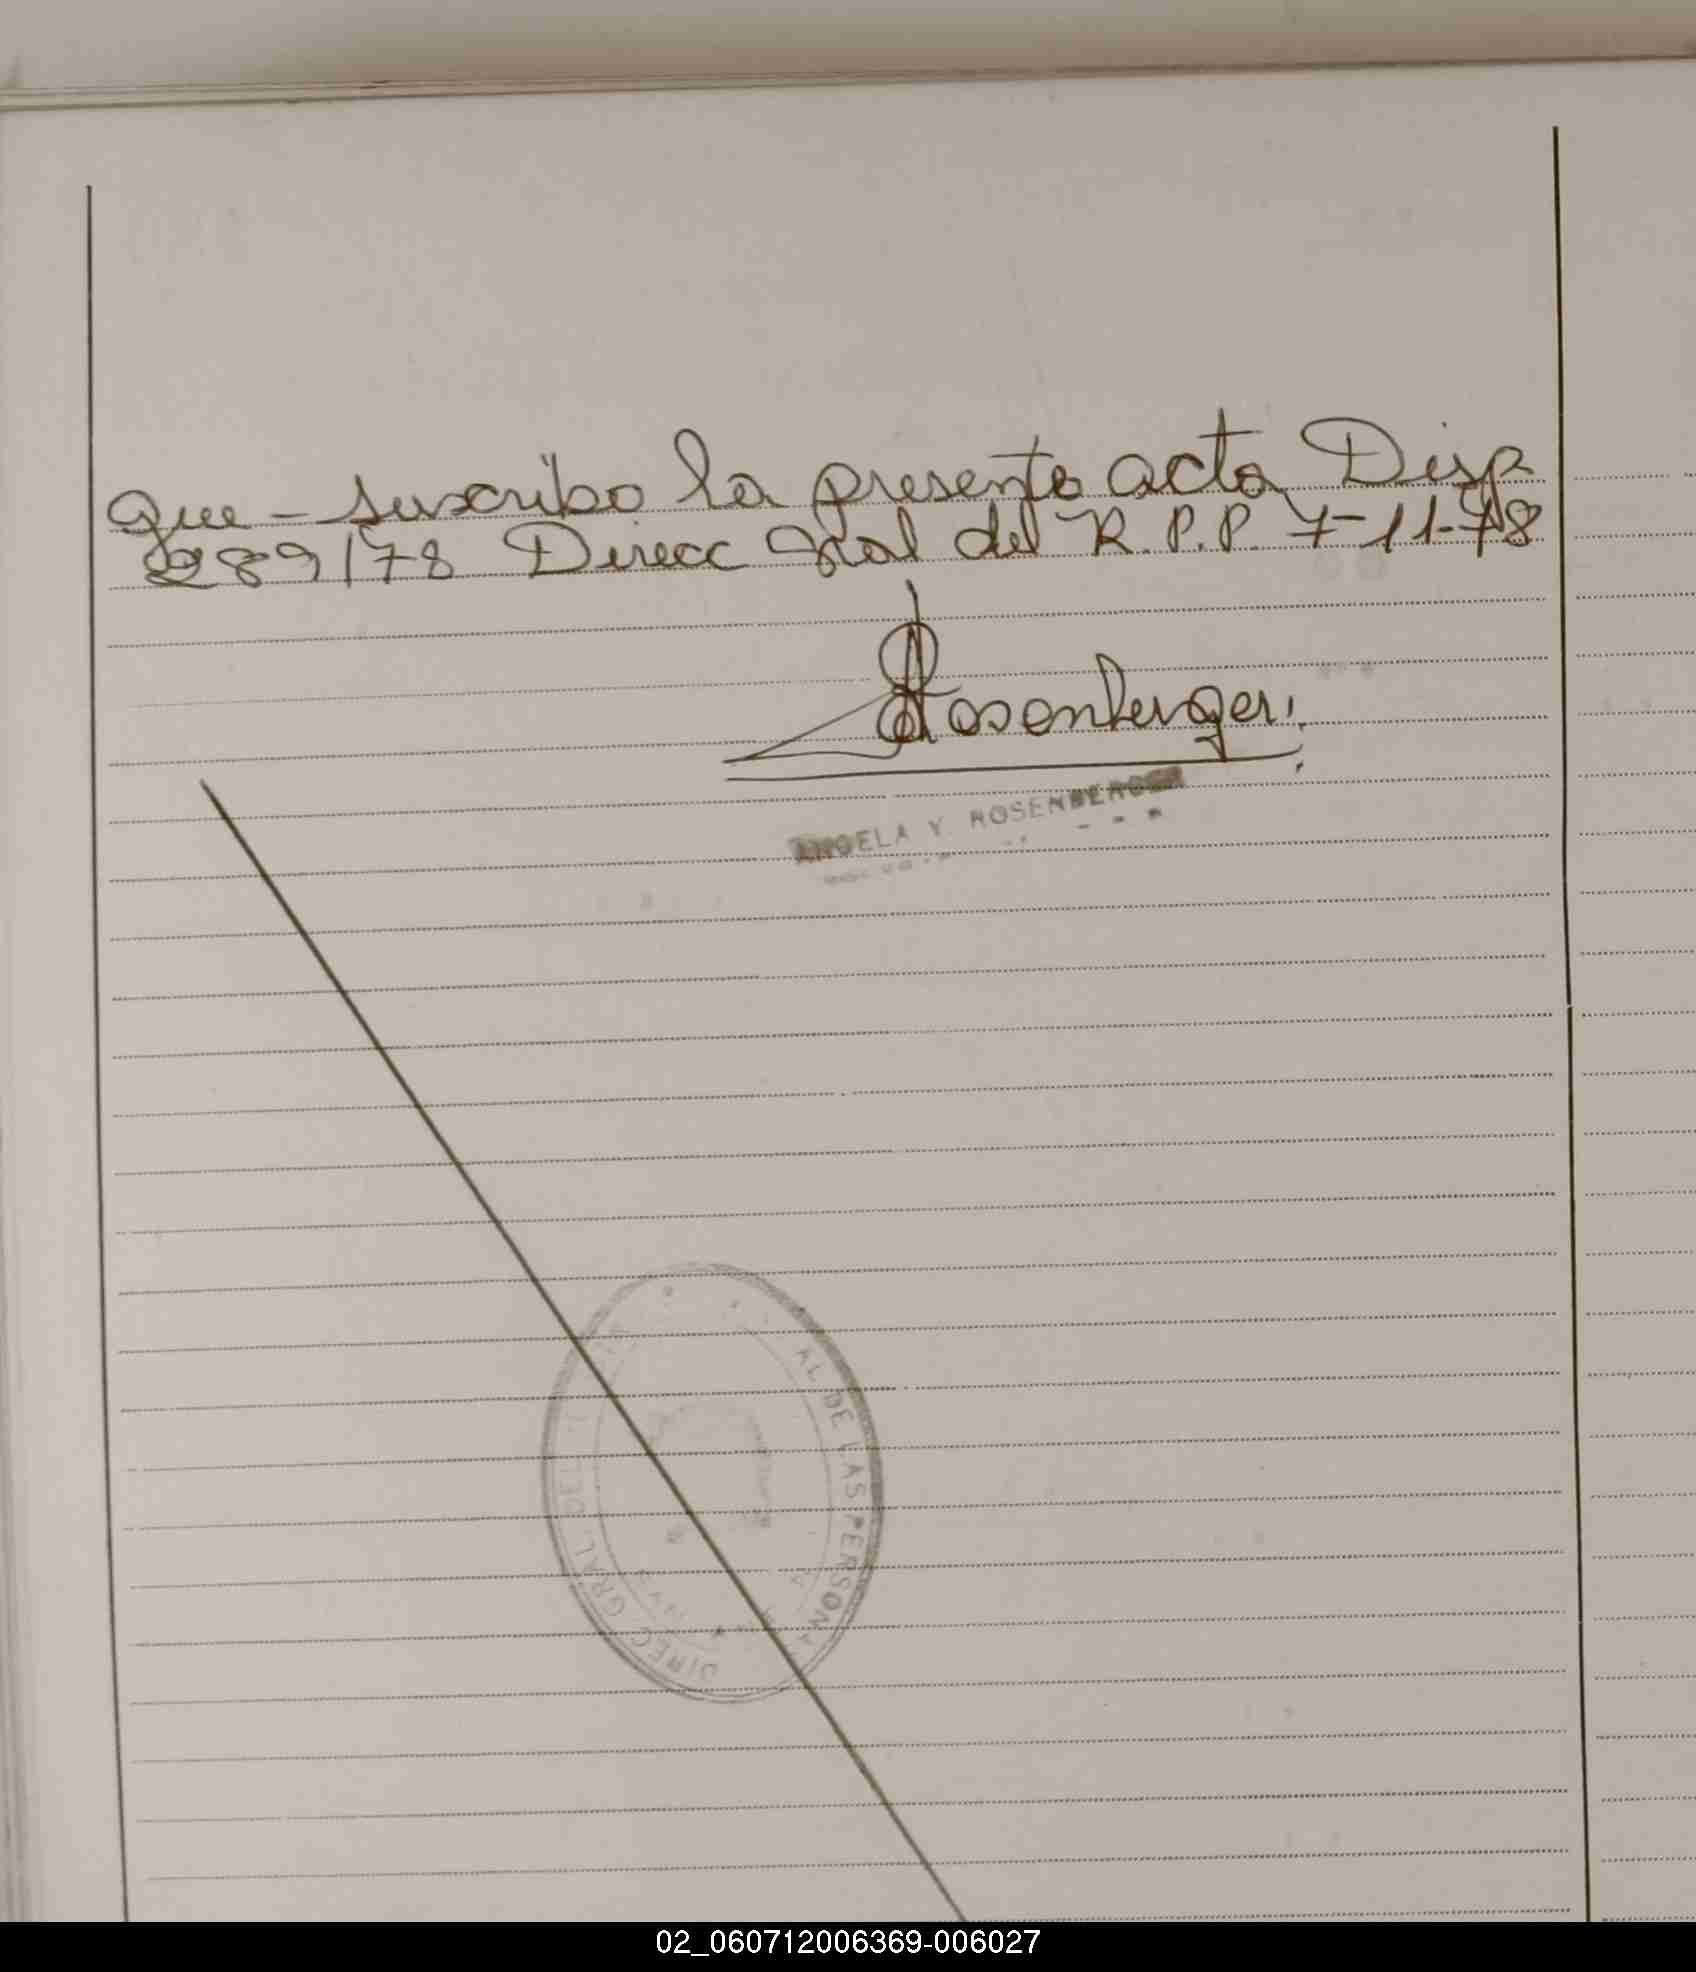 que - suscribo la presente acta Disp
289/78 Direcc Gral del R.P.P. 7-11-78
Rosenberger.
ANGELA Y. ROSENBERGER
DIRECC GRAL DEL
AL DE LAS PERSONA
02_060712006369-006027